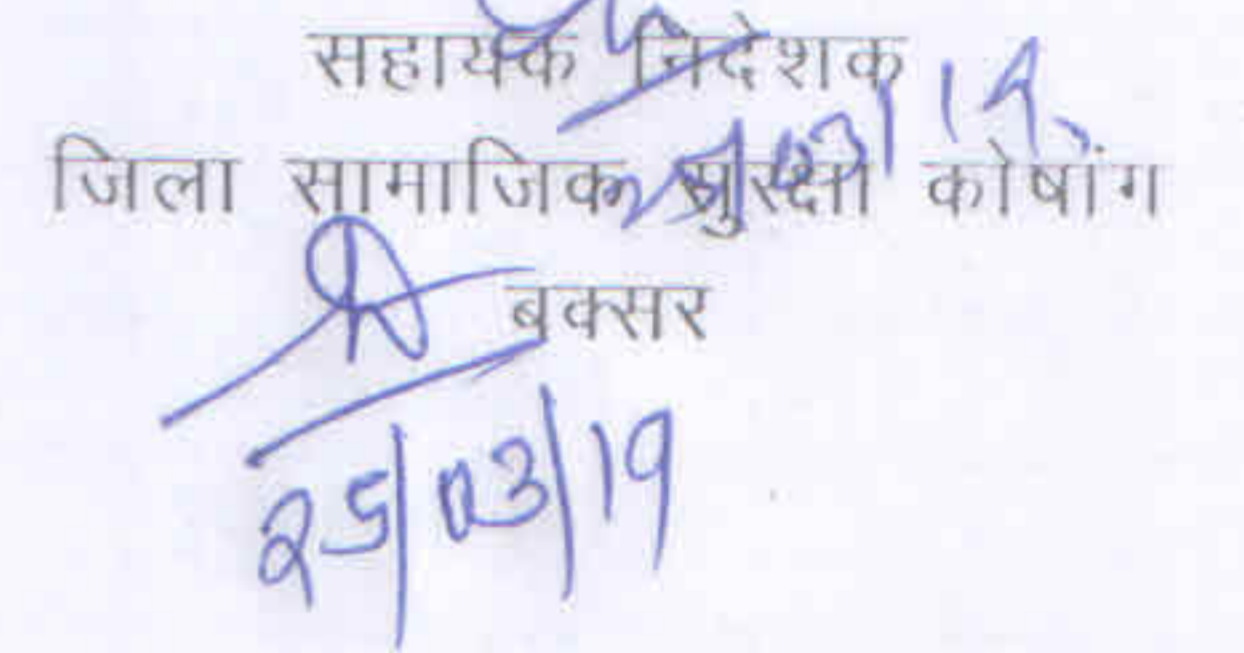 सहायक निदेशक
25/03/19
जिला सामाजिक सुरक्षा कोषांग
बक्सर
25/03/19